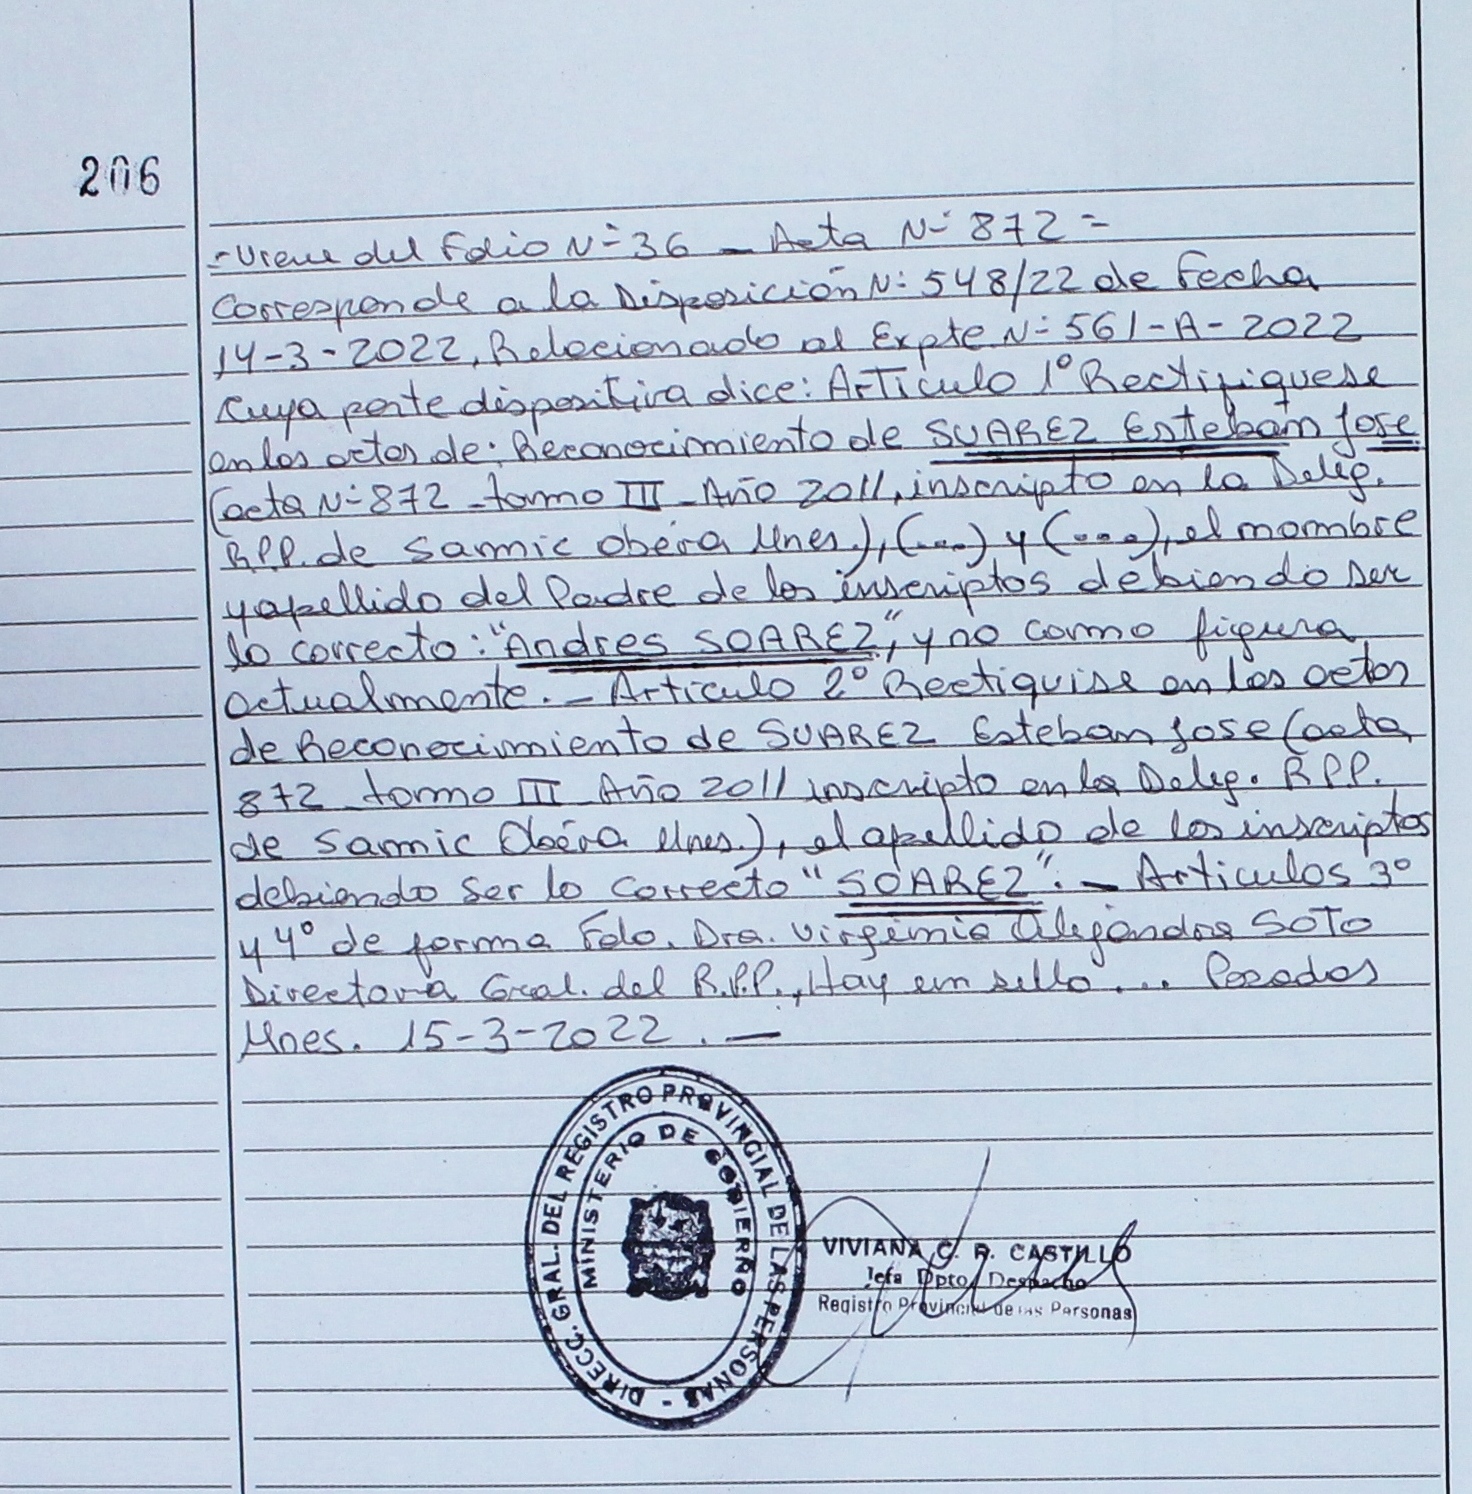 206
-Viene del Folio N° 36 - Acta N° 872 -
Corresponde a la Disposición N° 548/22 de Fecha
14-3-2022, Relacionado al Expte N° 561-A-2022
cuya parte dispositiva dice: Artículo 1° Rectifiquese
en los actos de: Reconocimiento de SUAREZ Esteban Jose
(acta N° 872 - tomo III - Año 2011, inscripto en la Deleg.
R.P.P. de Samic Oberá Mnes.), (...) y (...), el nombre
y apellido del Padre de los inscriptos debiendo ser
lo correcto: "Andres SOAREZ", y no como figura
actualmente. - Articulo 2° Rectiquise en los actos
de Reconocimiento de SUAREZ Esteban Jose (acta
872 - tomo III - Año 2011 inscripto en la Deleg. R.P.P.
de Samic Oberá Mnes.), el apellido de los inscriptos
debiendo ser lo correcto "SOAREZ". - Articulos 3°
y 4° de forma Fdo. Dra. Virginia Alejandra SOTO
Directora Gral. del R.P.P., Hay un sello... Posadas
Mnes. 15-3-2022. -
DIRECC. GRAL. DEL REGISTRO PROVINCIAL DE LAS PERSONAS -
MINISTERIO DE GOBIERNO
VIVIANA C. R. CASTILLO
Jefa Dpto. Despacho
Registro Provincial de las Personas